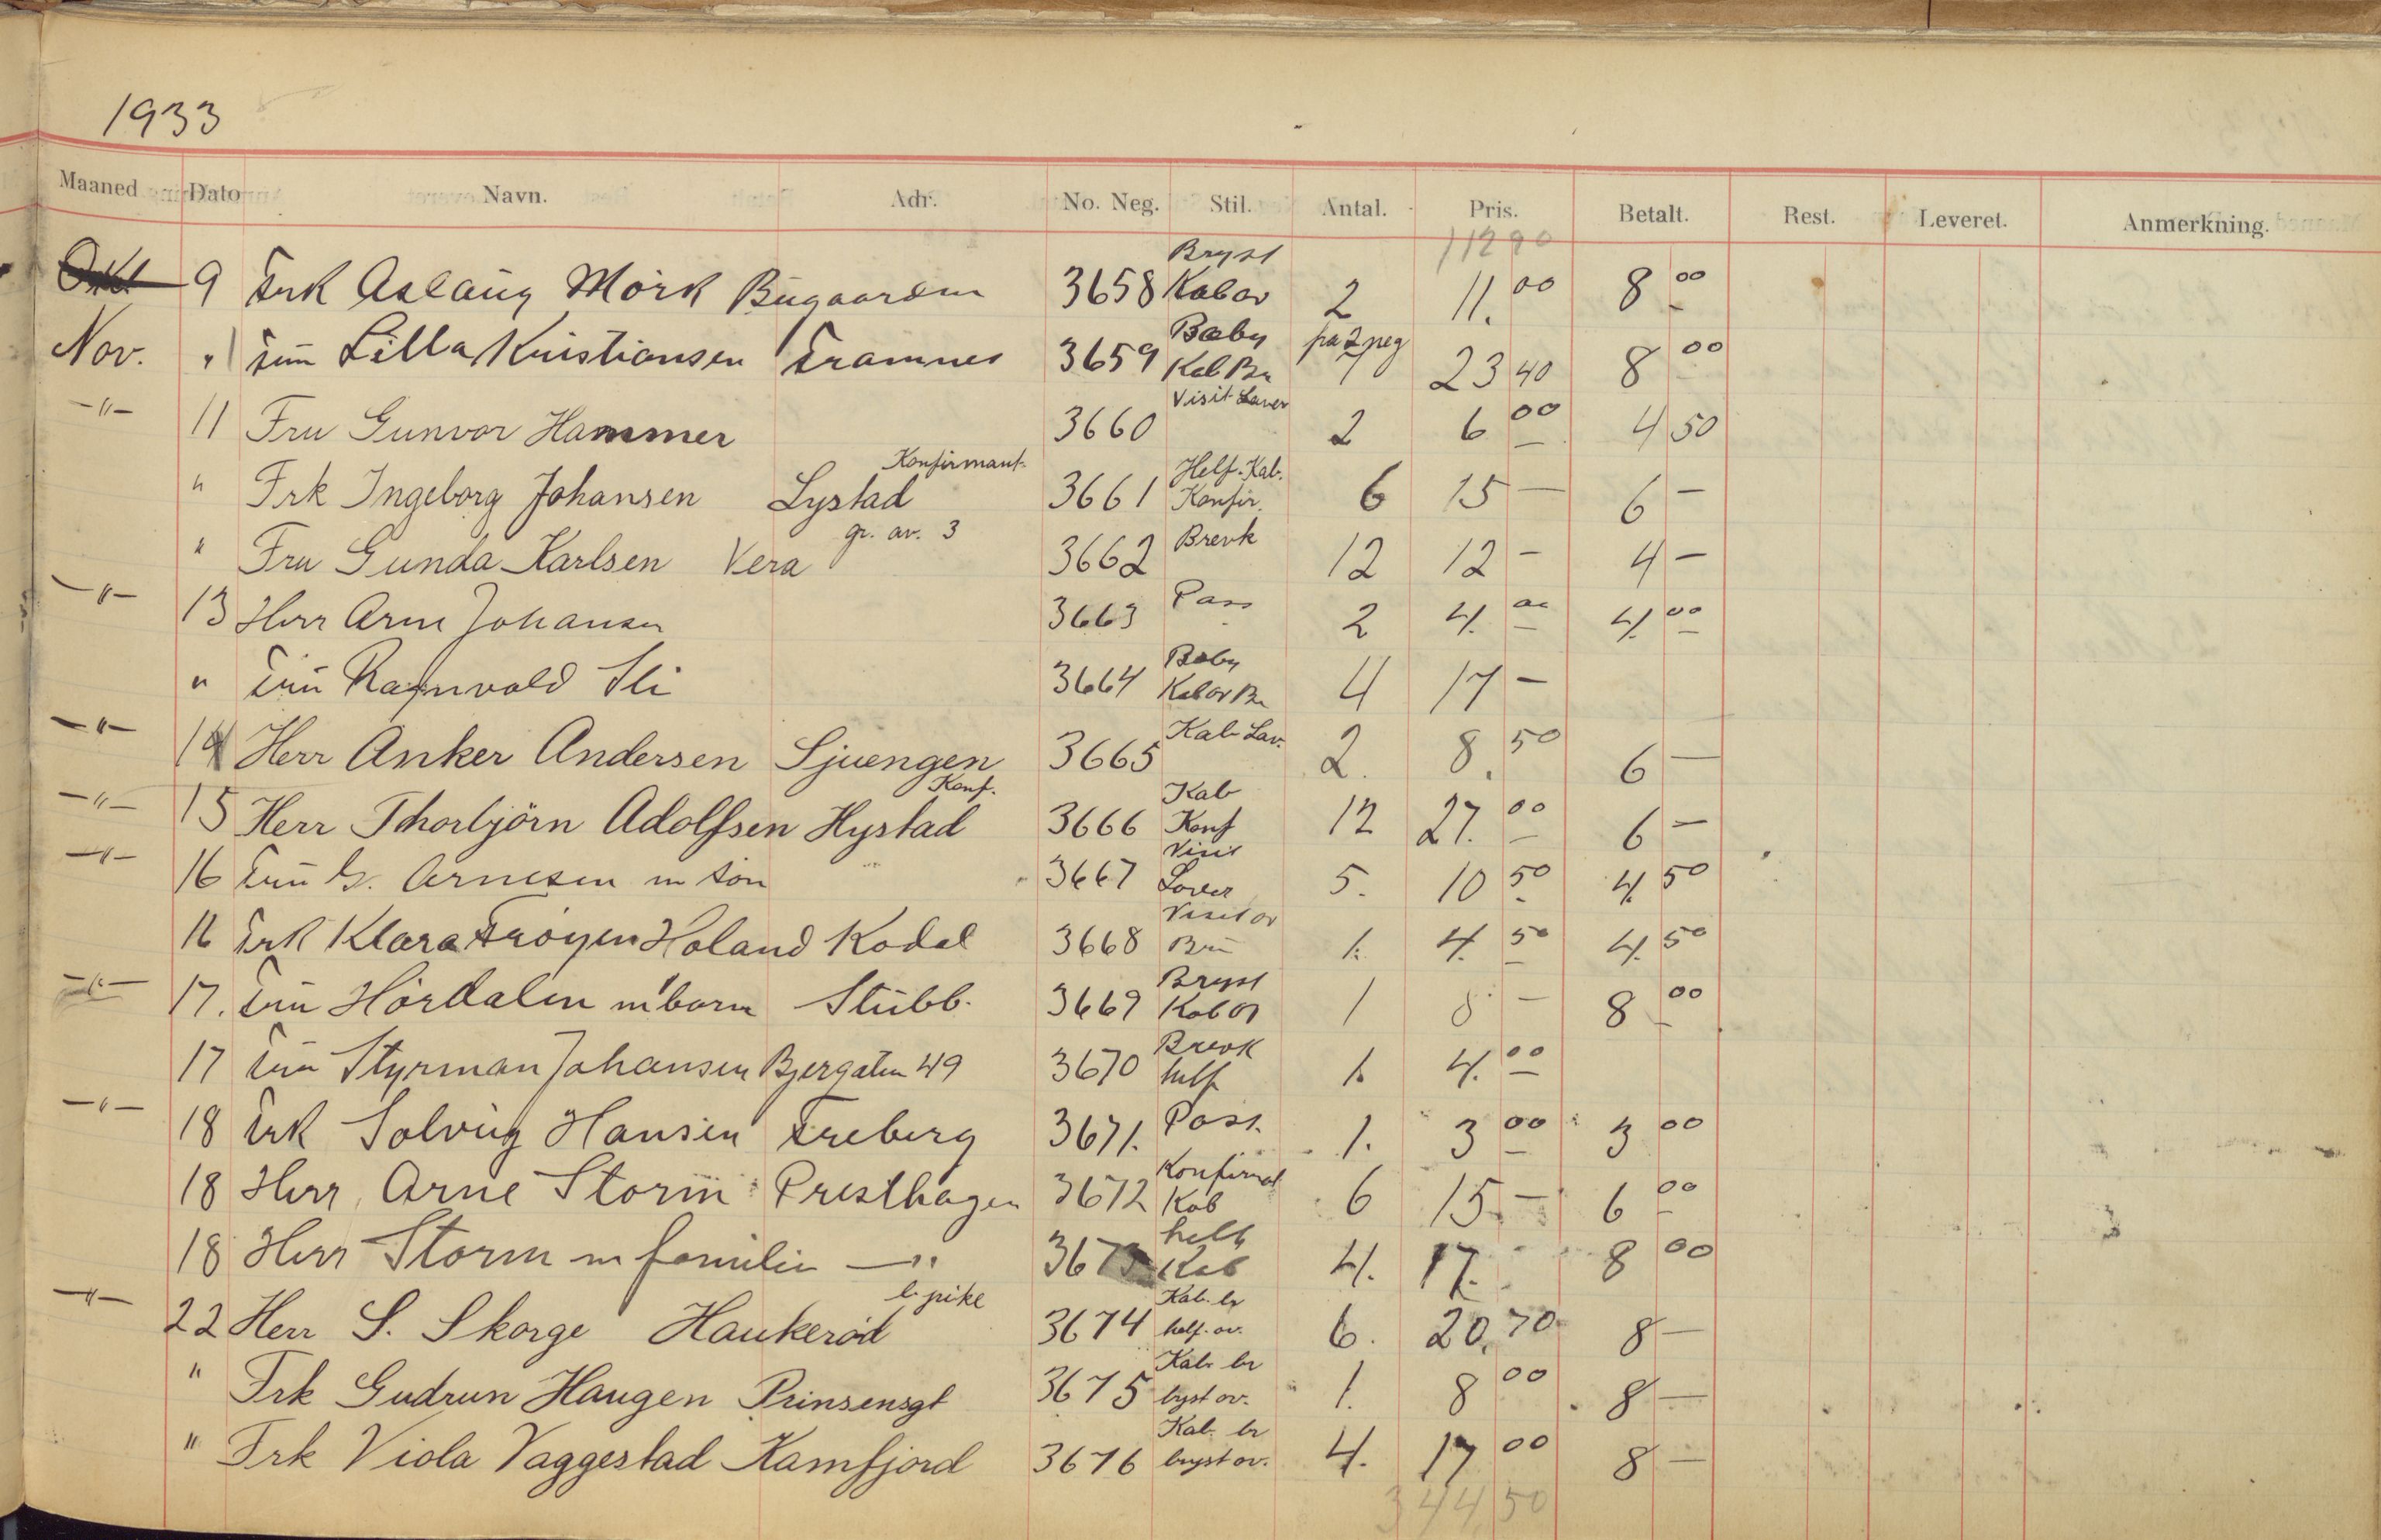 1933
Maaned Dato Navn. Adr. No. Neg. Stil. Antal. Pris. Betalt. Rest. Leveret. Anmerkning.
11290
Okt 9 Frk Aslaug Mörk Bugaarden 3658 Bryst Kab ov 2 11.00 8 00
Nov. " Fru Lilla Kristiansen Framnes 3659 Baby Kab Br paa 2 neg 7 23 40 8 00
-"- 11 Fru Gunvor Hammer 3660 Visit Laver 2 6 00 4 50
" Frk Ingeborg Johansen Konfirmant. Lystad 3661 Helf. Kab. Konfir. 6 15 — 6 —
" Fru Gunda Karlsen Vera gr. av. 3 3662 Brevk 12 12 — 4 —
-"- 13 Herr Arne Johansen 3663 Pass 2 4. 00 4. 00
" Fru Ragnvald Sti 3664 Baby Kab ov Br 4 17 —
-"- 14 Herr Anker Andersen Sjuengen 3665 Kab Lav. 2. 8. 50 6 —
-"- 15 Herr Thorbjörn Adolfsen Konf. Hystad 3666 Kab Konf 12 27. 00 6 —
-"- 16 Fru G. Arnesen m sön 3667 Visit Laver 5. 10 50 4. 50
16 Frk Klara Fröyen Holand Kodal 3668 Visit ov Br 1. 4. 50 4. 50
-"- 17. Fru Hördalen m barn Stubb. 3669 Bryst Kab ov 1 8 — 8 00
17 Fru Styrman Johansen Bjergaten 49 3670 Brevk helf 1. 4. 00
-"- 18 Frk Solveig Hansen Freberg 3671. Pass. 1. 3 00 3 00
18 Herr Arne Storm Presthagen 3672 Konfirmat Kab 6 15 — 6 00
18 Herr Storm m familie —"— 3673 helf Kab 4. 17. 8 00
-"- 22 Herr S. Skorge l. pike Haukeröd 3674 Kab. br helf. ov. 6. 20.70 8 —
" Frk Gudrun Haugen Prinsensgt 3675 Kab. br bryst ov. 1. 8 00 8 —
" Frk Viola Vaggestad Kamfjord 3676 Kab. br bryst ov. 4. 17 00 8 —
344 50